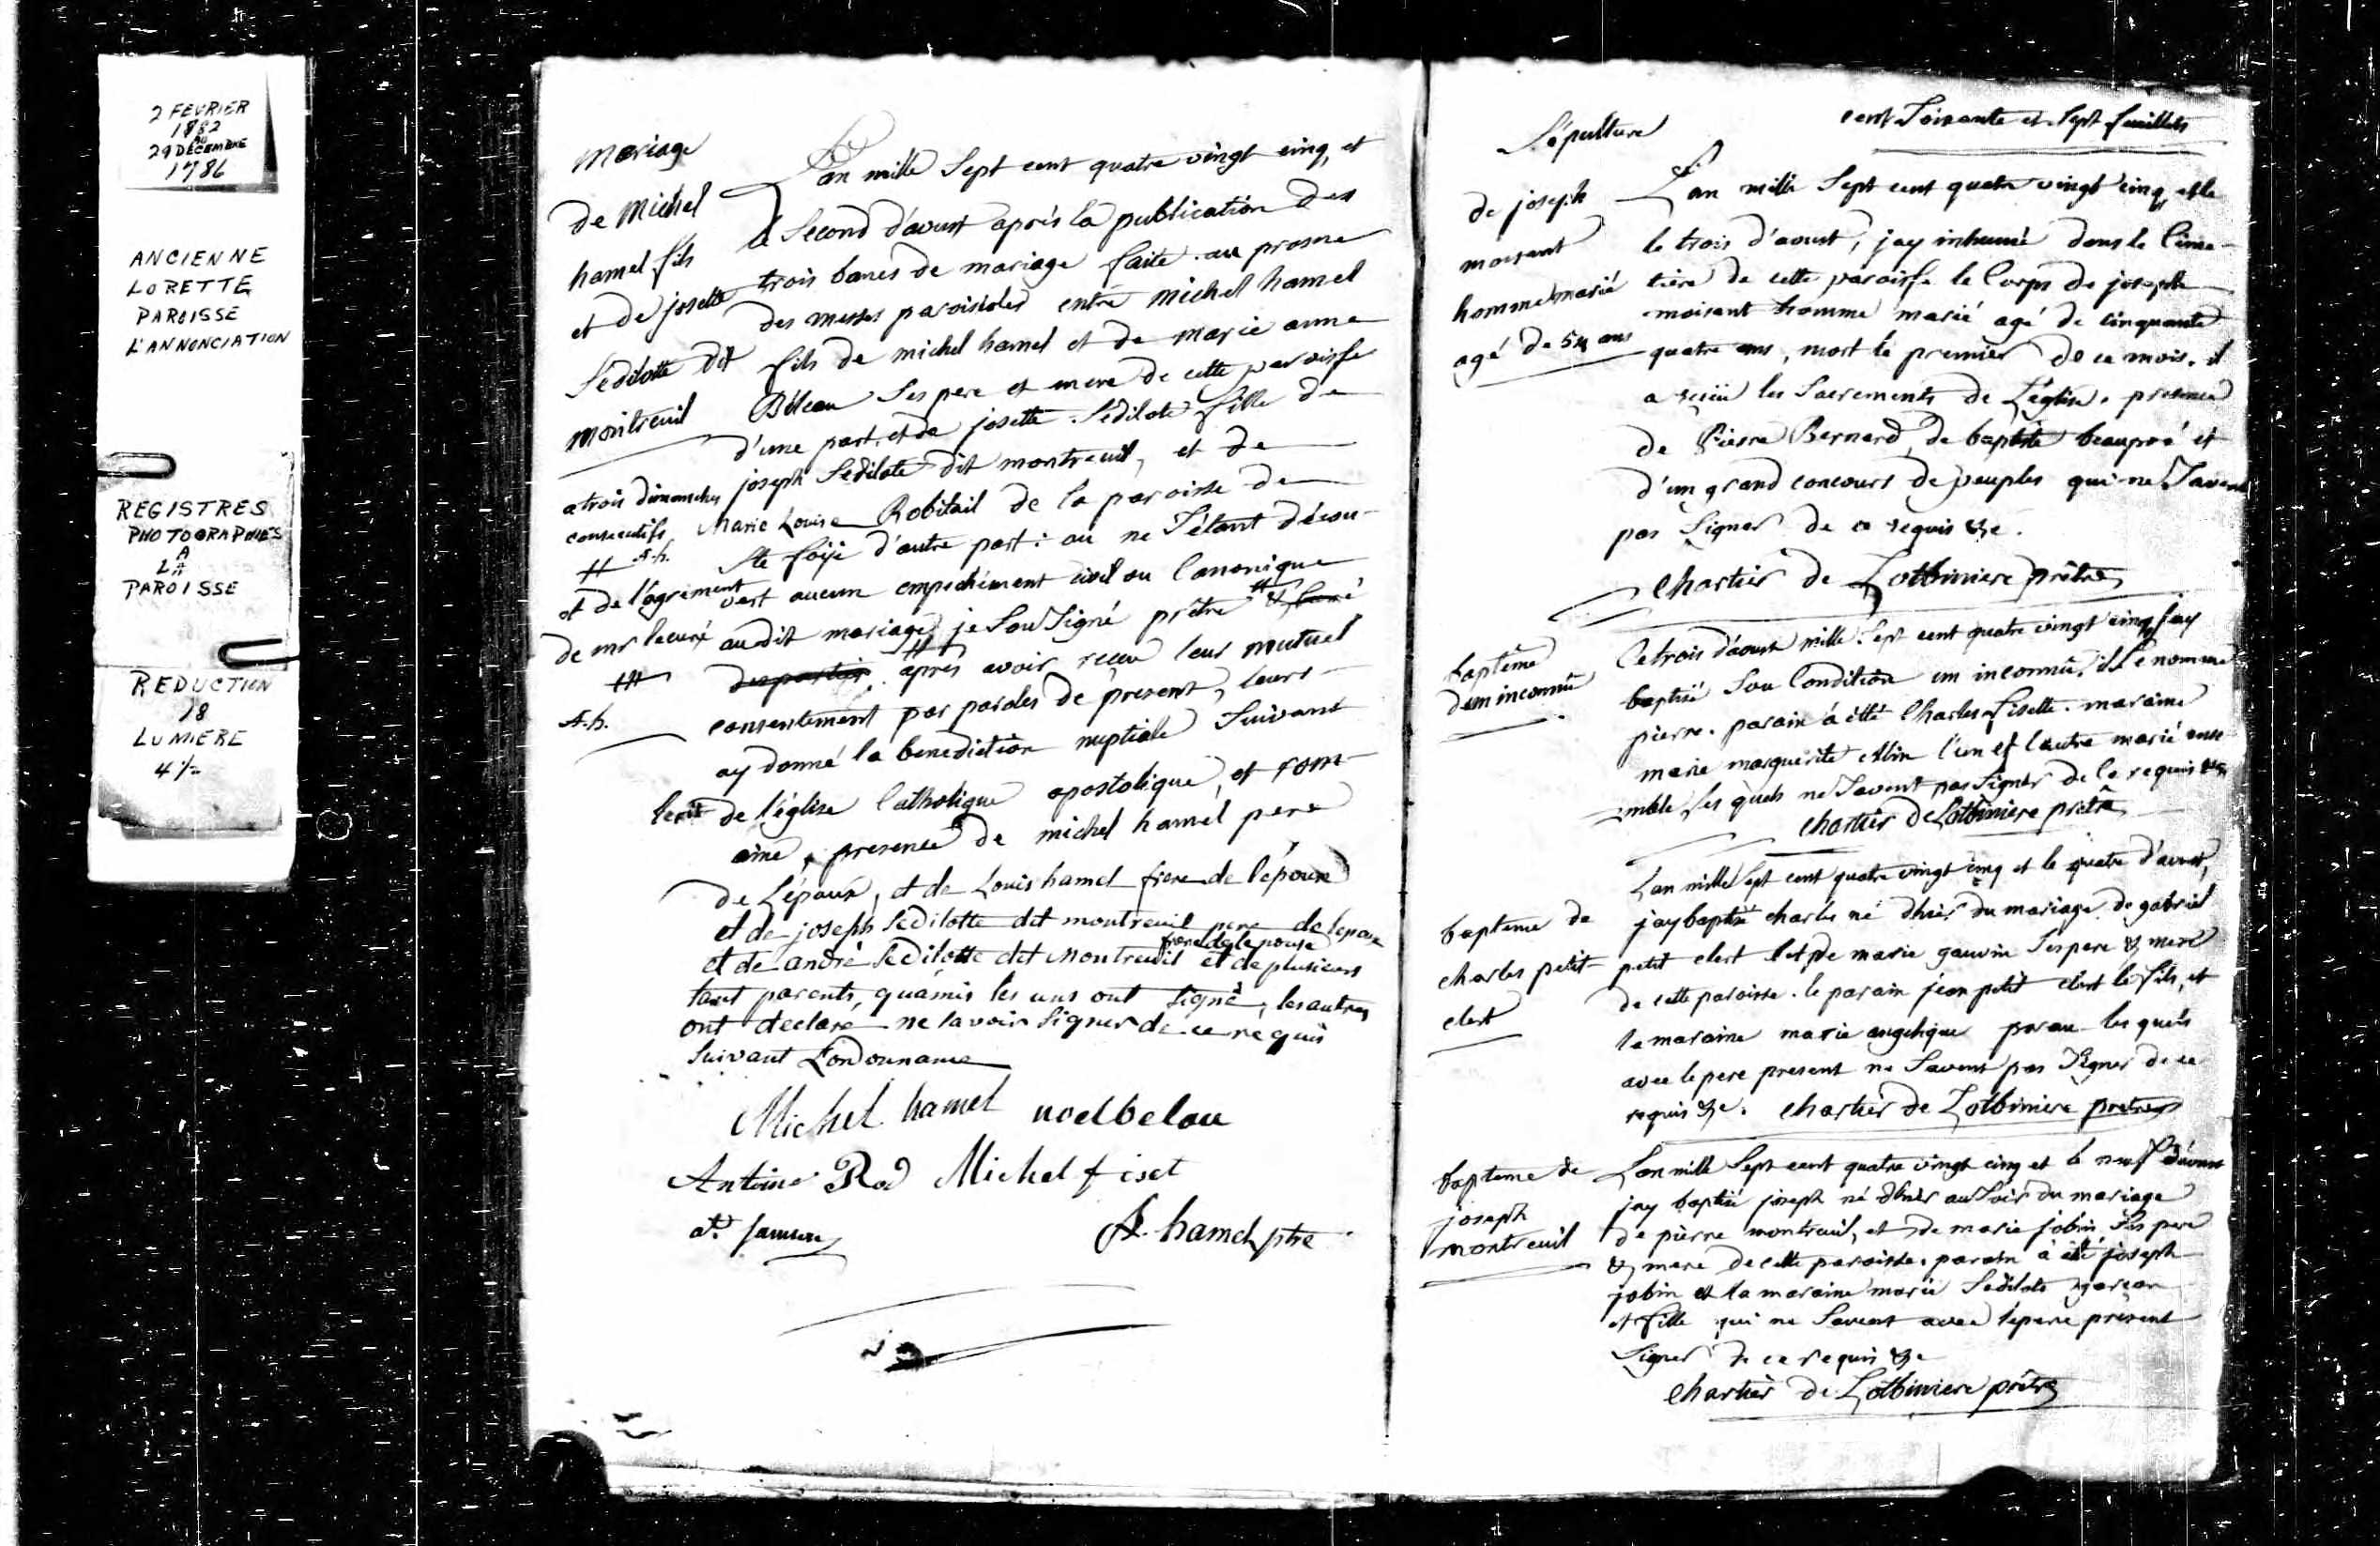 2 FEVRIER
1782
AU
29 DECEMBRE
1786
ANCIENNE
LORETTE
PAROISSE
L'ANNONCIATION
REGISTRES
PHOTOGRAPHIES
A
LA
PAROISSE
REDUCTION
18
LUMIERE
4 1/2
mariage
de Michel
hamel fils
et de josette
Sedilotte dit
montreuil
a trois dimanches
consecutifs
A. h.
et de l'agrement
de mr le curé
A. h.
L'an mille Sept cent quatre vingt cinq, et
le Second d'aoust après la publication des
trois bancs de mariage faite au prosne
des messes paroissiales entre michel hamel
fils de michel hamel et de marie anne
Béleau Ses pere et mere de cette paroisse
d'une part, et de josette Sedilote fille de
joseph Sedilote dit montreuil, et de
Marie Louise Robitail de la paroisse de
Ste foÿe d'autre part: ou ne S'étant décou-
vert aucun empechement civil ou Canonique
audit mariage je Sousigné prêtre & curé
après avoir reçeu leur mutuel
consentement par paroles de present, leurs
ay donné la benediction nuptiale Suivant
de l'église Catholique apostolique, et rom-
aine, presence de michel hamel pere
de L'époux, et de Louis hamel frere de l'époux
et de joseph Sedilotte dit montreuil pere de lepouse
frere de lepouse
et de andré Sedilotte dit Montreuil et de plusieurs
tant parents, quamis les uns ont signé, les autres
ont declaré ne savoir signer de ce requis
Suivant Lordonnance
Michel hamel noel belau
Antoine Rod Michel fiset
A. hamel ptre
cent Soixante et Sept feuillets
Sépulture
de joseph
moisant
homme marié
agé de 54 ans
L'an mille Sept cent quatre vingt cinq, et le
le trois d'aoust, jay inhumé dans le Cime-
tière de cette paroisse le Corps de joseph
moisant homme marié agé de cinquante
quatre ans, mort le premier de ce mois. il
a reçüe les Sacrements de L'église. presence
de Pierre Bernard, de baptiste beaupré et
d'un grand concours de peuples qui ne Savent
pas Signer de ce requis &c.
Chartier de Lotbiniere prêtre
baptême
dun inconnü
Le trois d'aoust mille Sept cent quatre vingt cinq, jay
baptisé Sou Condition un inconnü, il Se nomme
pierre. parain à étté Charles fisette. maraine
marie marguerite l'un et l'autre marié ense-
mble, les quels ne Savent pas signer de Ce requis &c
Chartier de Lotbiniere prêtre
bapteme de
charles petit
clert
L'an mille Sept cent quatre vingt cinq et le quatre d'aoust,
jay baptisé charles né d'hier du mariage de gabriel
petit clert et de marie gauvin Ses pere & mere
de cette paroisse. le parain jean petit clert le fils, et
la maraine marie angelique parau les quels
avec le pere present ne Savent pas Signer de ce
requis &c. Chartier de Lotbiniere prêtre
bapteme de
joseph
montreuil
L'an mille Sept cent quatre vingt cinq et le neuf d'aoust
jay baptisé joseph né d'hier au Soir du mariage
de pierre montreuil, et de marie jobin Ses pere
& mere de cette paroisse. parain à été joseph
jobin et la maraine marie Sedilote garçon
et fille qui ne Savent avec le pere present
Signer de ce requis &c
Chartier de Lotbiniere prêtre